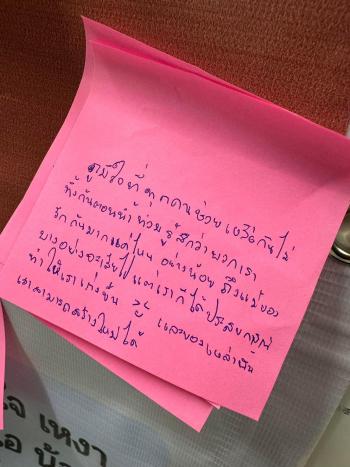 ภูมิใจที่ทุกคนช่วยเหลือกันไม่
ทิ้งกันตอนน้ำท่วม รู้สึกว่าพวกเรา
รักกันมากแค่ไหน อย่างน้อย ถึงแม้ของ
บางอย่างจะเสียไป แต่เราก็ได้ประสบการณ์
ทำให้เราเก่งขึ้น สู้ๆ และของเหล่านั้น
เราสามารถสร้างใหม่ได้
ใจ เหงา